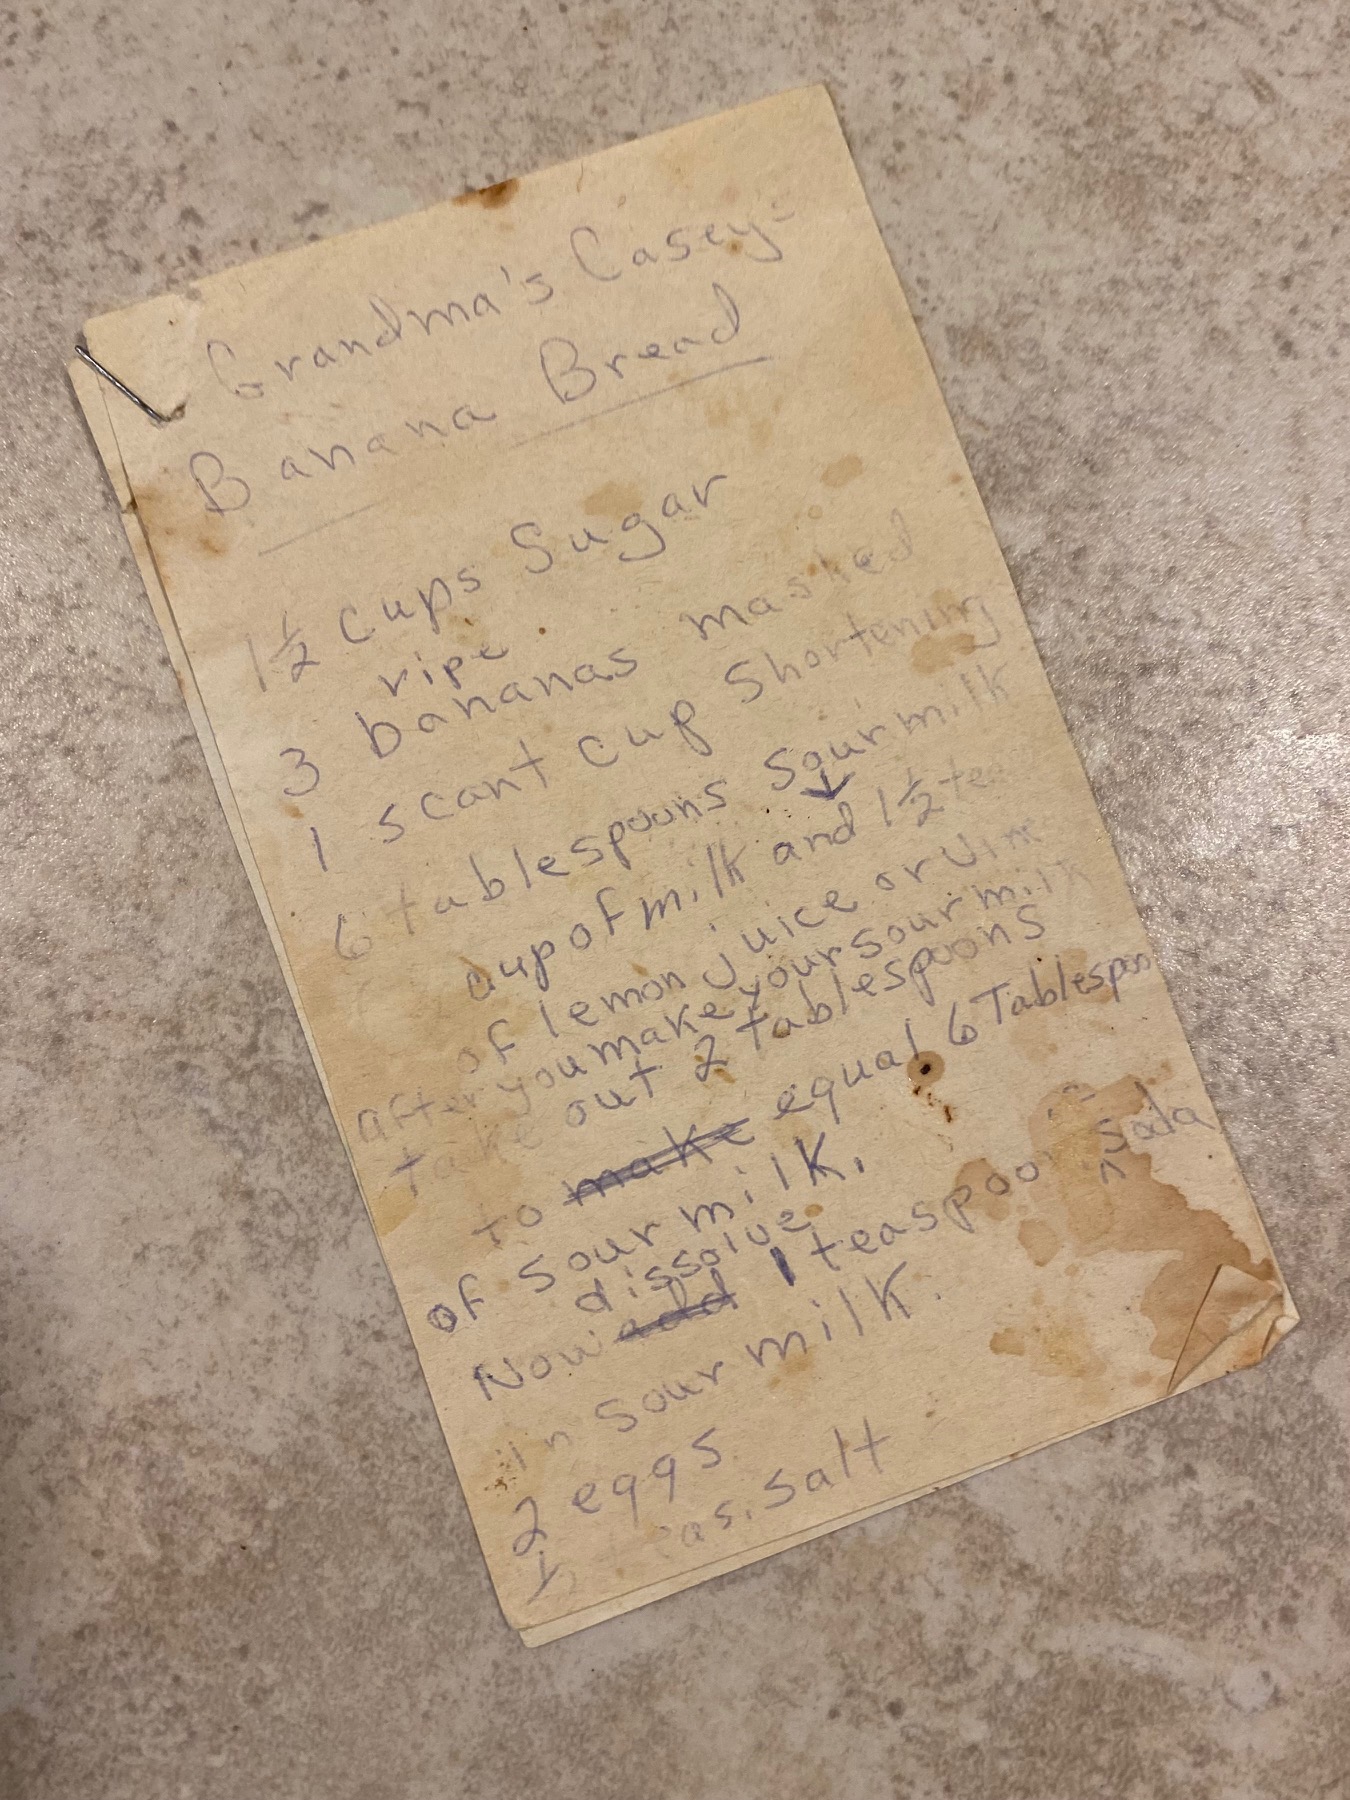 Grandma's Casey-
Banana Bread
1 1/2 cups Sugar
ripe
3 bananas mashed
1 scant cup Shortening
6 tablespoons sour milk
cup of milk and 1 1/2 tea
of lemon juice or vine
after you make your sour milk
take out 2 tablespoons
to make equal 6 Tablespoo
of sour milk.
dissolve
Now add 1 teaspoon Soda
in sour milk.
2 eggs
salt